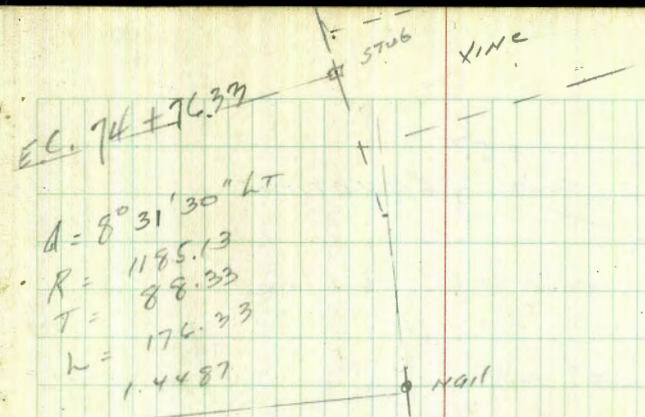 STUB
XINC
E.C. 74 + 76.33
Δ = 8° 31' 30" LT
R = 1185.13
T = 88.33
L = 176.33
1.4487
NAIL